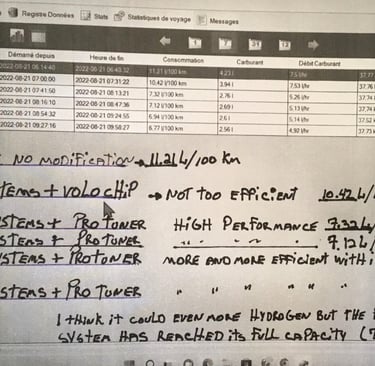 Registre Données Stats Statistiques de voyage Messages
1 7 31 12
Démarré depuis Heure de fin Consommation Carburant Débit Carburant
2022-08-21 06:14:40 2022-08-21 06:48:32 11,21 l/100 km 4,23 l 7,5 l/hr 37,77
2022-08-21 07:00:00 2022-08-21 07:31:22 10,42 l/100 km 3.94 l 7,53 l/hr 37,76
2022-08-21 07:41:50 2022-08-21 08:13:21 7,32 l/100 km 2,76 l 5,26 l/hr 37,74
2022-08-21 08:16:10 2022-08-21 08:47:36 7,12 l/100 km 2,69 l 5,13 l/hr 37,74
2022-08-21 08:54:32 2022-08-21 09:24:55 6,94 l/100 km 2,6 l 5,14 l/hr 37,52
2022-08-21 09:27:16 2022-08-21 09:58:27 6,77 l/100 km 2,56 l 4,92 l/hr 37,73
NO MODIFICATION → 11.21 L/100 km
TEMS + VOLOCHIP → NOT TOO EFFICIENT 10.42 L/
YSTEMS + PRO TUNER HIGH PERFORMANCE 7.32 L/
YSTEMS + PRO TUNER " " " 7.12 L/
YSTEMS + PROTUNER MORE AND MORE EFFICIENT WITH
YSTEMS + PRO TUNER " " " "
I THINK IT COULD EVEN MORE HYDROGEN BUT THE
SYSTEM HAS REACHED ITS FULL CAPACITY (7